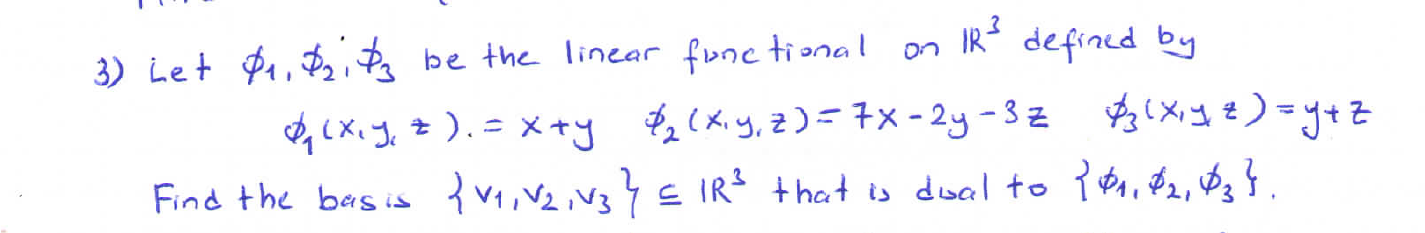 3) Let ϕ₁, ϕ₂, ϕ₃ be the linear functional on ℝ³ defined by
ϕ₁(x, y, z) = x+y ϕ₂(x, y, z) = 7x - 2y - 3z ϕ₃(x, y z) = y+z
Find the basis {v₁, v₂, v₃} ⊆ ℝ³ that is dual to {ϕ₁, ϕ₂, ϕ₃}.